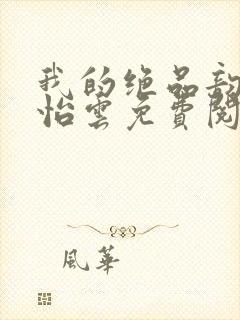 我的绝品
怡雲免費閱
風華